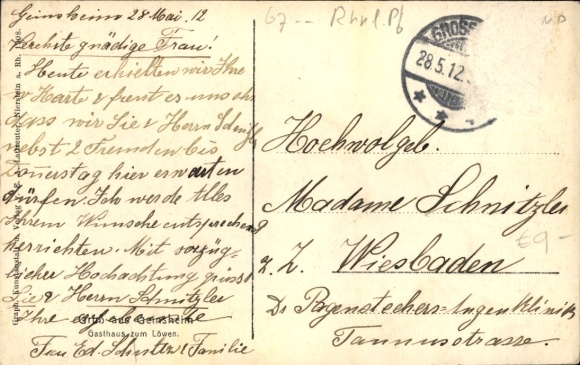 Geinsheim 28 Mai. 12
Verehrte gnädige Frau!
Heute erhielten wir Ihre
w Karte & freut es uns
dass wir Sie & Herrn Schnitzler
nebst 2 Fremden bis
Donerstag hier erwarten
dürfen. Ich werde Alles
Ihrem Wunsche entsprechend
herrichten. Mit vorzüg-
licher Hochachtung grüsst
Sie & Herrn Schnitzler
Ihre ergebenste
Gruß aus Geinsheim
Gasthaus zum Löwen.
Frau Ed. Schultz & Familie
67-- Rhld. Pf
GROSS
28.5.12
Hochwolgeb.
Madame Schnitzler
z. Z. Wiesbaden
£9-
Dr Pagenstechers-Augenklinik
Taunusstrasse.
Graph. Kunstanstalt u. Verlag Nierstein a. Rh.